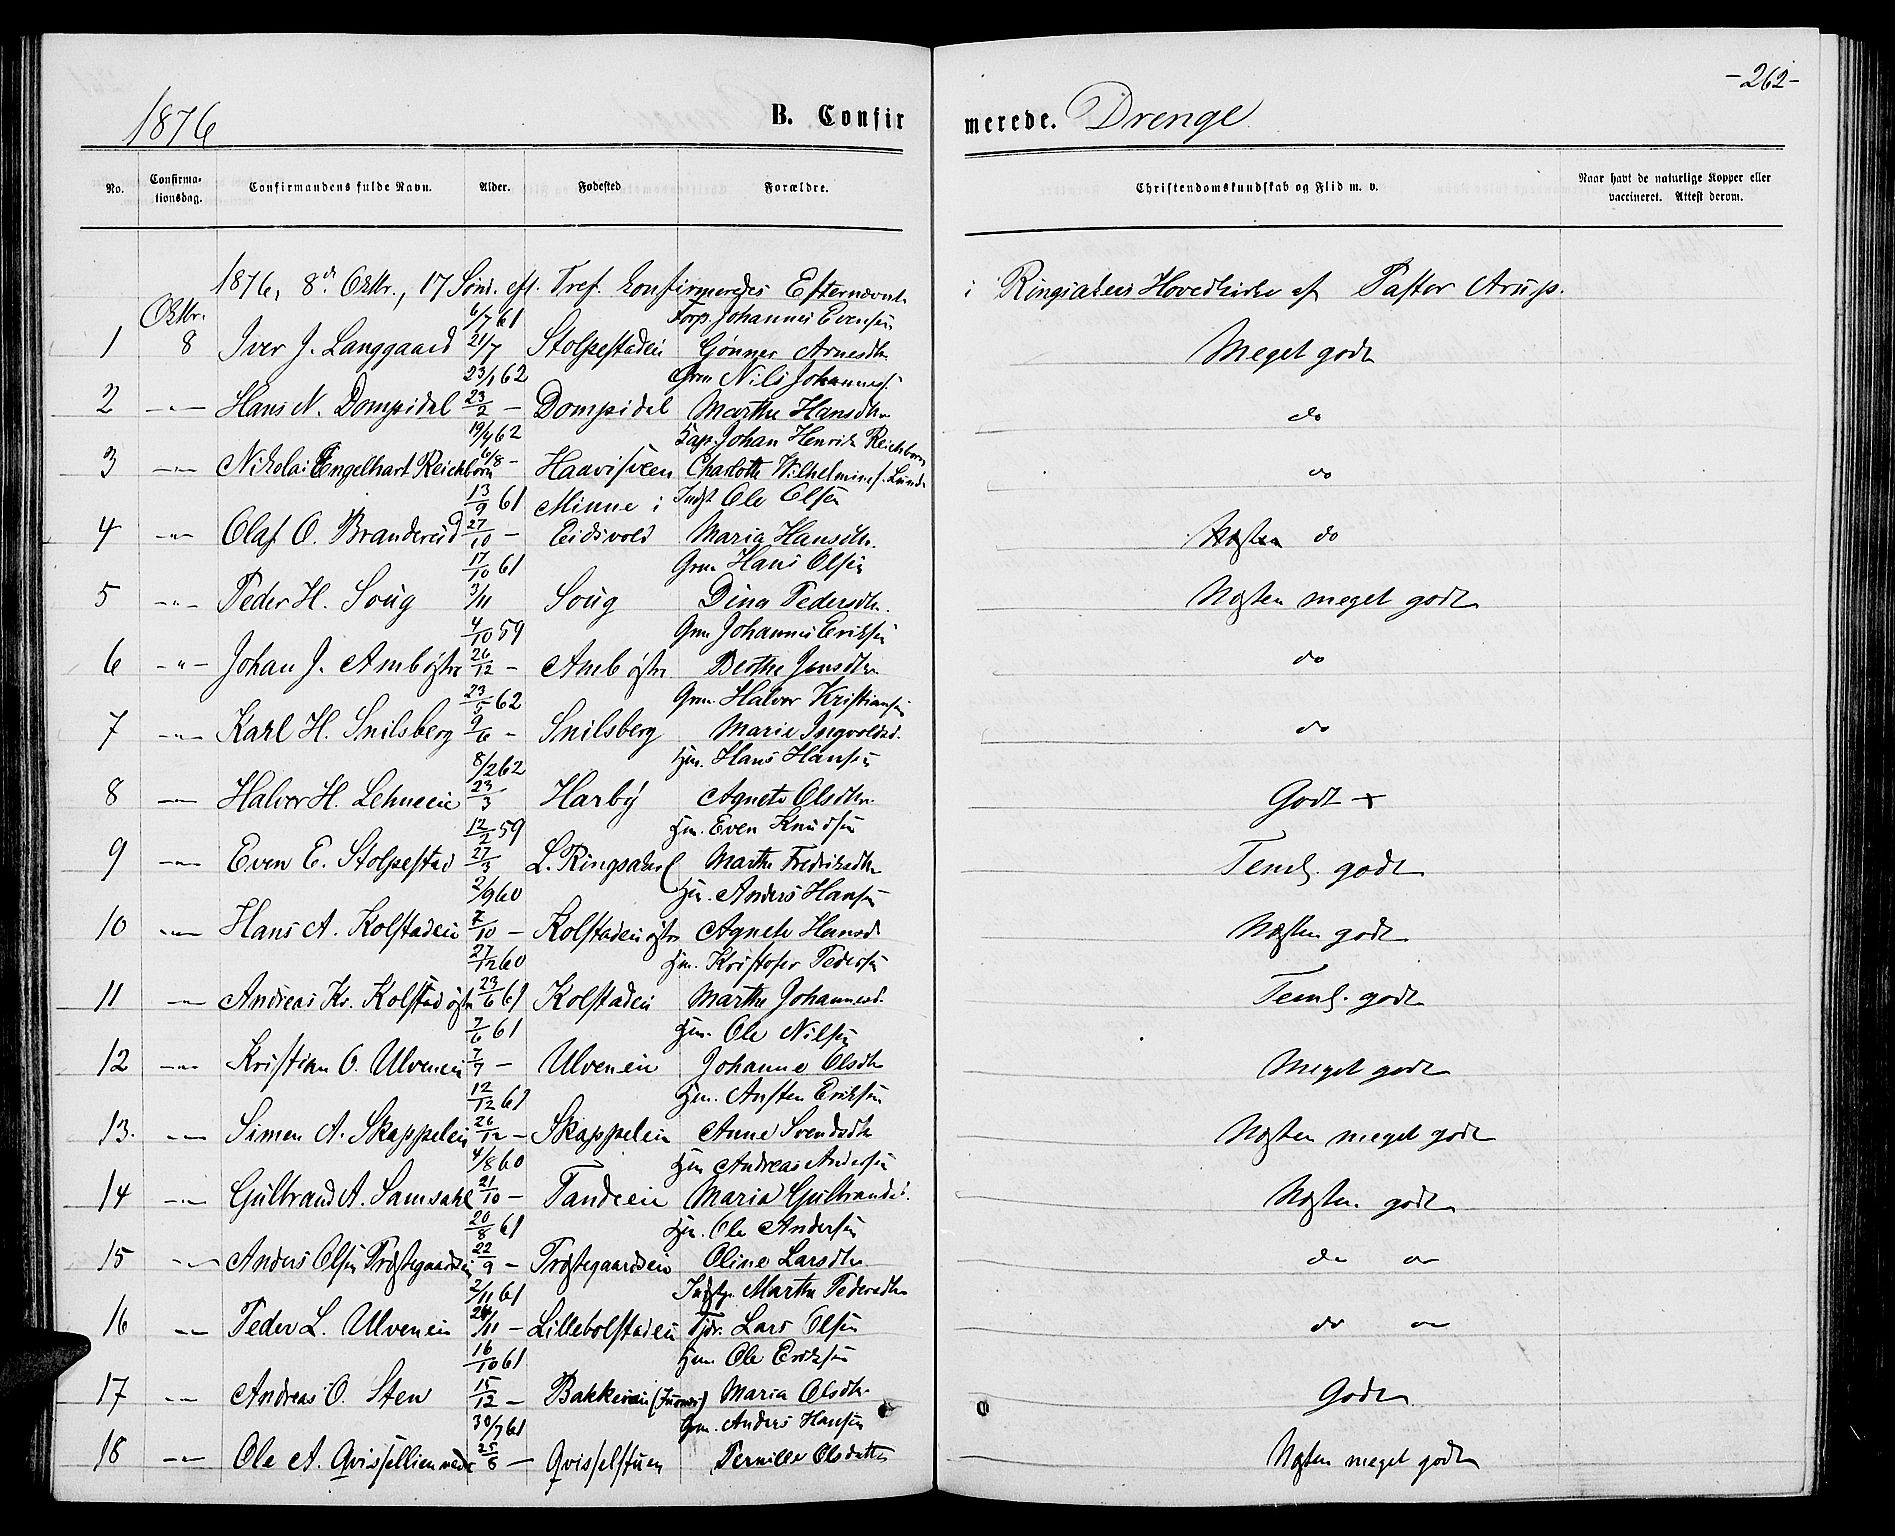 1876
B. Confirmerede. Drenge
-262-
No. Confirmationsdag. Confirmandens fulde Navn. Alder. Fødested Forældre. Christendomskundskab og Flid m. v. Naar havt de naturlige Kopper eller vaccineret. Attest derom.
1876, 8de Oktbr., 17 Sønd. eft. Tref. konfirmeredes Efternævnte i Ringsakers Hovedkirke af Pastor Arup.
Oktbr. 6/7 61 Torp. Johannes Evensen
1 8 Iver J. Langgaard 21/7 Stolpestadeie Gønner Arnesdtr Meget godt
23/1 62 Grm Nils Johanness.
2 -"- Hans N. Dompidal 23/2 - Dompidal Marthe Hansdtr do
19/4 62 Kap. Johan Henrik Reichborn
3 -"- Nikolai Engelhart Reichborn 6/8 - Haavisveen Charlotte Wilhelmine f. Lunde do
13/9 61 Minne i Indst Ole Olsen
4 -"- Olaf O. Brandereid 27/10 - Eidsvold Maria Hansdtr. Næsten do
17/10 61 Grm Hans Olsen
5 -"- Peder H. Soug 3/11 Soug Dina Pedersdtr. Næsten meget godt
4/10 59 Grm Johannes Eriksen
6 -"- Johan J. Amb østre 26/12 - Amb østre Berthe Jensdtr do
23/5 62 Grm. Halvor Kristiansen
7 -"- Karl H. Snilsberg 9/6 - Snilsberg Marie Ingvoldsd. do
8/2 62 Hm. Hans Hansen
8 -"- Halvor H. Lehneeie 23/3 Harby Agnete Olsdtr. Godt +
12/2 59 Hm. Even Knudsen
9 -"- Even E. Stolpestad 27/3 L. Ringsaker Marthe Fredriksdtr Teml. godt
2/9 60 Hm. Anders Hansen
10 -"- Hans A. Kolstadeie 7/10 - Kolstadeie østre Agnete Hansd. Næsten godt
27/12 60 Hm. Kristofer Pedersen
11 -"- Andreas Kr. Kolstad østre 23/6 61 Kolstadeie Marthe Johannesd. Teml. godt
7/6 61 Hm. Ole Nilsen
12 -"- Kristian O. Ulveneie 7/7 - Ulveneie Johanne Olsdtr Meget godt
12/12 61 Hm. Austen Eriksen
13. -"- Simen A. Skappeleie 26/12 - Skappeleie Anne Svendsdtr Næsten meget godt
4/8 60 Hm Andreas Andersen
14 -"- Gulbrand A. Samsahl 21/10 - Tandeeie Maria Gulbrandsd. Næsten godt
20/8 61 Hm. Ole Andersen
15 -"- Anders Olsen Præstegaardseie 22/9 - Præstegaardseie Oline Larsdtr do do
2/11 61 Indstp. Marthe Pedersdtr
16 -"- Peder L. Ulveneie 24/11 - Lillebolstadeie Tjdr. Lars Olsen do do
16/10 61 Hm. Ole Eriksen
17 -"- Andreas O. Sten 15/12 - Bakkeeie (Furnes) Maria Olsdtr. Godt
30/7 61 Grm. Anders Hansen
18 -"- Ole A. Qvissellien nedre 25/8 - Qvisselstuen Pernille Olsdatter Næsten meget godt